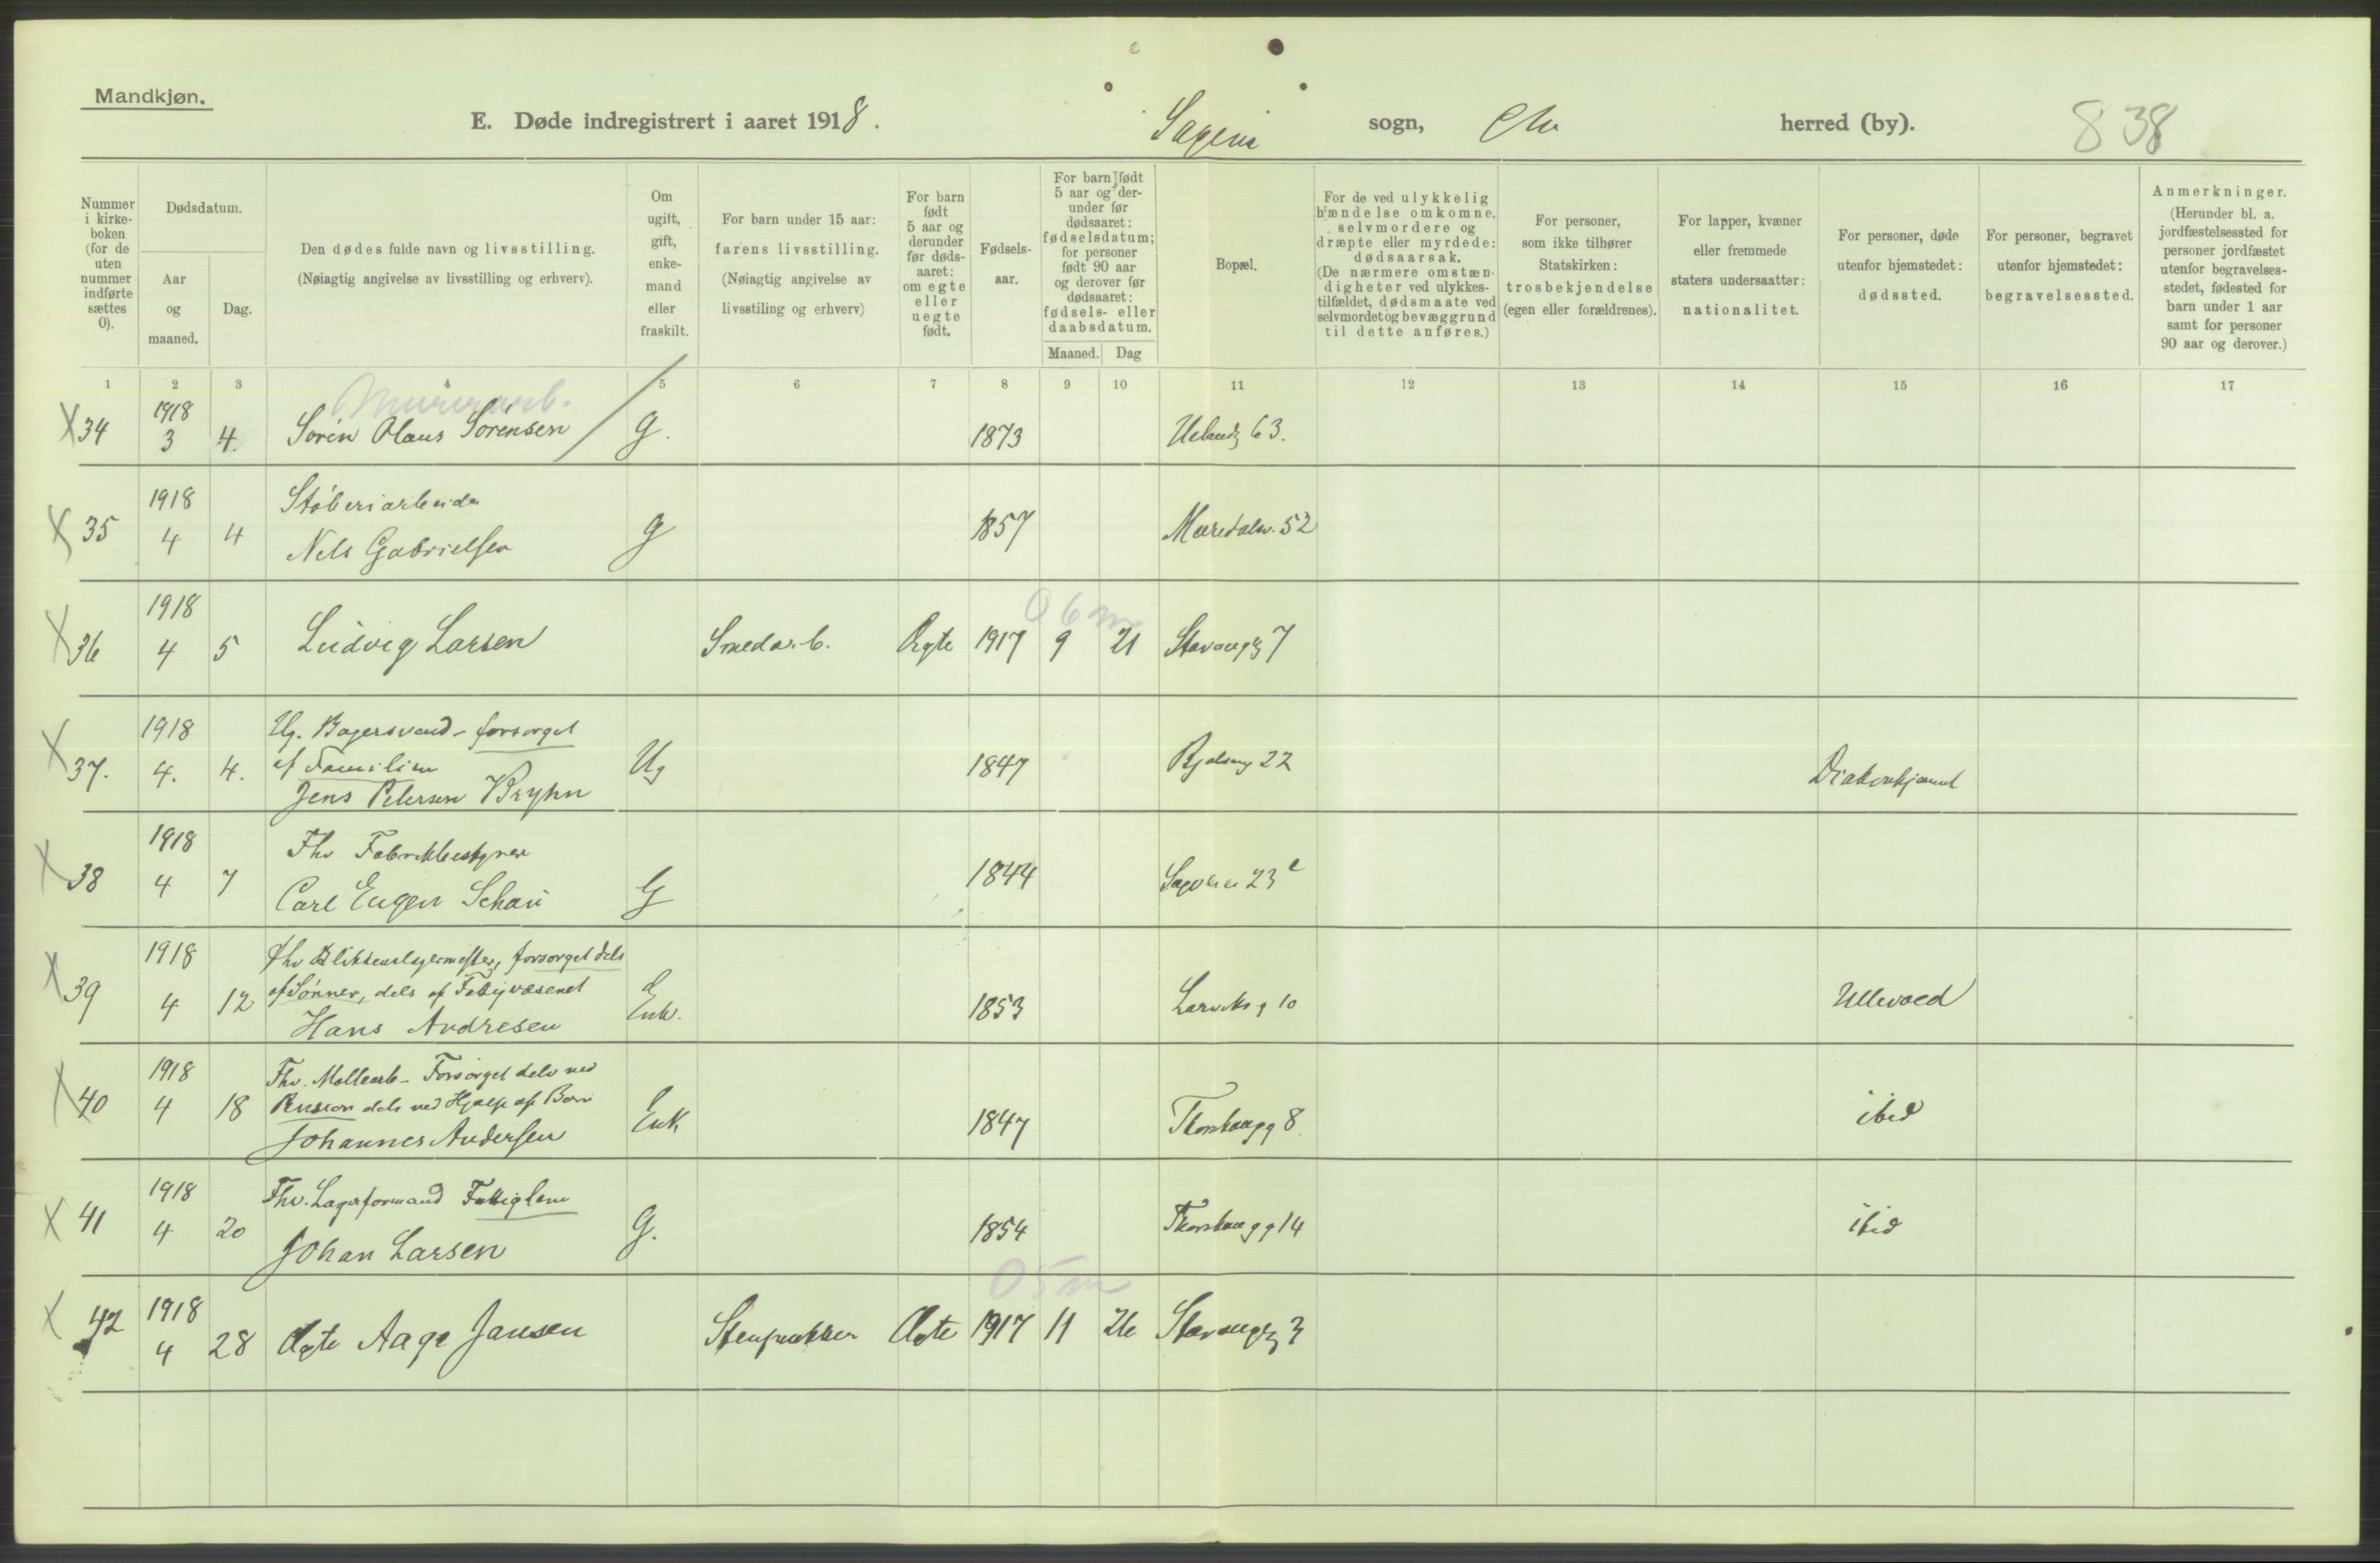 Mandkjøn.
E. Døde indregistrert i aaret 1918. Sagene sogn, Chr herred (by). 838
Nummer i kirkeboken (for de uten nummer indførte sættes 0).
Dødsdatum.
Aar og maaned.
Dag.
Den dødes fulde navn og livsstilling.
(Nøiagtig angivelse av livsstilling og erhverv).
Om ugift, gift, enkemand eller fraskilt.
For barn under 15 aar: farens livsstilling.
(Nøiagtig angivelse av livsstiling og erhverv)
For barn født 5 aar og derunder før dødsaaret: om egte eller uegte født.
Fødselsaar.
For barn født 5 aar og derunder før dødsaaret: fødselsdatum; for personer født 90 aar og derover før dødsaaret: fødsels- eller daabsdatum.
Maaned. Dag
Bopæl.
For de ved ulykkelig hændelse omkomne, selvmordere og dræpte eller myrdede: dødsaarsak.
(De nærmere omstændigheter ved ulykkestilfældet, dødsmaate ved selvmordet og bevæggrund til dette anføres.)
For personer, som ikke tilhører Statskirken: trosbekjendelse (egen eller forældrenes).
For lapper, kvæner eller fremmede staters undersaatter: nationalitet.
For personer, døde utenfor hjemstedet: dødssted.
For personer, begravet utenfor hjemstedet: begravelsessted.
Anmerkninger.
(Herunder bl. a. jordfæstelsessted for personer jordfæstet utenfor begravelsesstedet, fødested for barn under 1 aar samt for personer 90 aar og derover.)
1 2 3 4 5 6 7 8 9 10 11 12 13 14 15 16 17
Murerarb.
1918
X 34 3 4. Sørén Olaus Sörensen g. 1873 Uelandsg 63.
1918 Støberiarbeider
X 35 4 4 Nels Gabrielsen g 1857 Maridalsv. 52
1918 0 6 m
X 36 4 5 Ludvig Larsen Smedarb. Ægte 1917 9 21 Stavangg 7
1918 Ug. Bagersvend - forsørget
X 37. 4. 4. af Familien Ug 1847 22 Diakonhjemmet
Jens Petersen Bryhn
1918 Fhv Fabrikbestyrer
X 38 4 7 Carl Eugen Schau G 1844 Sagveien 23 c
1918 Fhv Blikkenslagermester, forsørget dels
X 39 4 12 af Sønner, dels af Fattigvæsenet Enk. 1853 Larviksg 10 Ullevaal
Hans Andresen
1918 Fhv. Møllearb - Forsørget dels ved
X 40 4 18 Pension dels ved Hjælp af Børn Enk 1847 Thorshaugg 8 ibid
Johannes Andersen
1918 Fhv. Lagerformand Fattiglem
X 41 4 20 Johan Larsen G. 1854 Thorshaugg 14 ibid
0 5 m
1918
X 42 4 28 Ægte Aage Jansen Stenpukker Ægte 1917 11 26 Stavangg 3